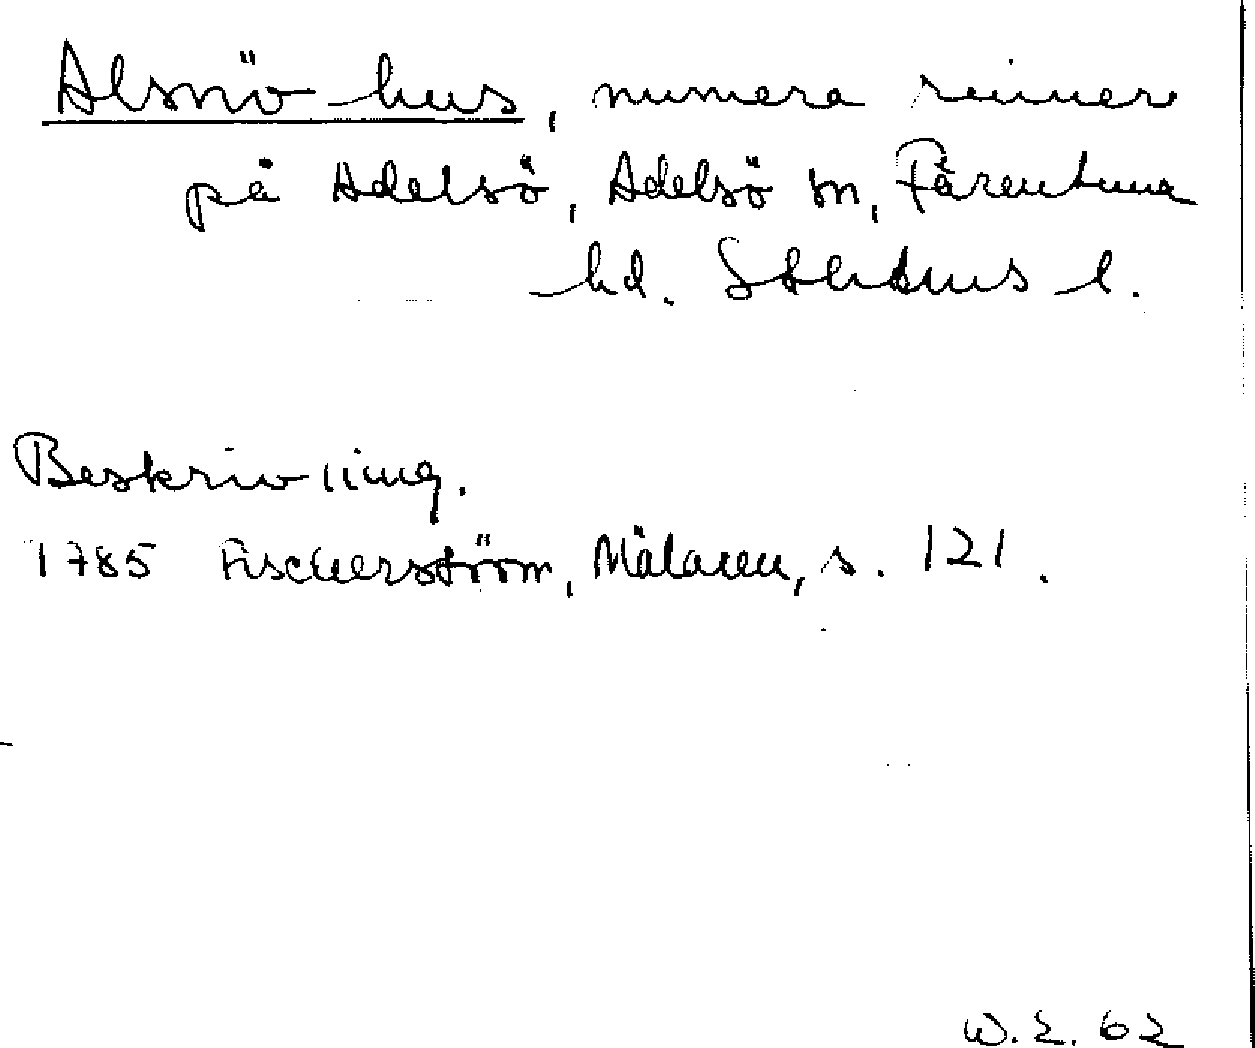 Alsnö hus, numera ruiner
på Adelsö, Adelsö sn, Färentuna
hd. Sthlms l.
Beskrivning.
1785 Fischerström, Mälaren, s. 121.
W.E. 62